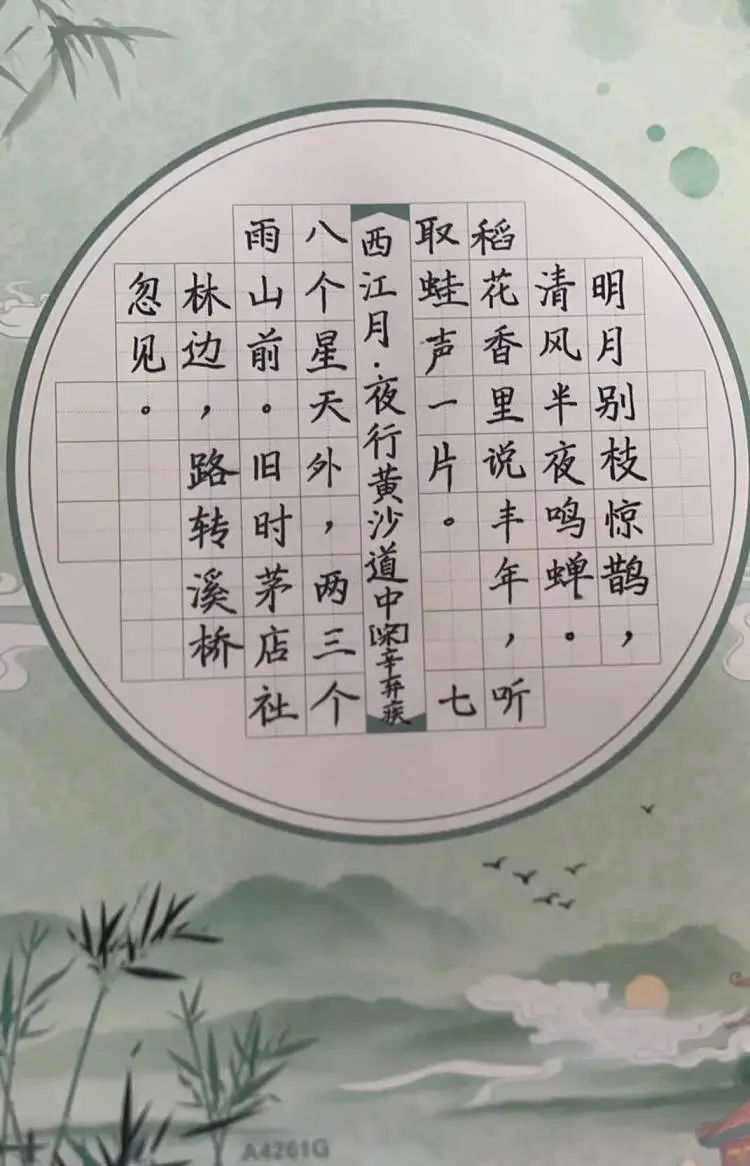 明月别枝惊鹊，
清风半夜鸣蝉。
稻花香里说丰年，听
取蛙声一片。七
西江月·夜行黄沙道中[宋]辛弃疾
八个星天外，两三个
雨山前。旧时茅店社
林边，路转溪桥
忽见。
A4261G